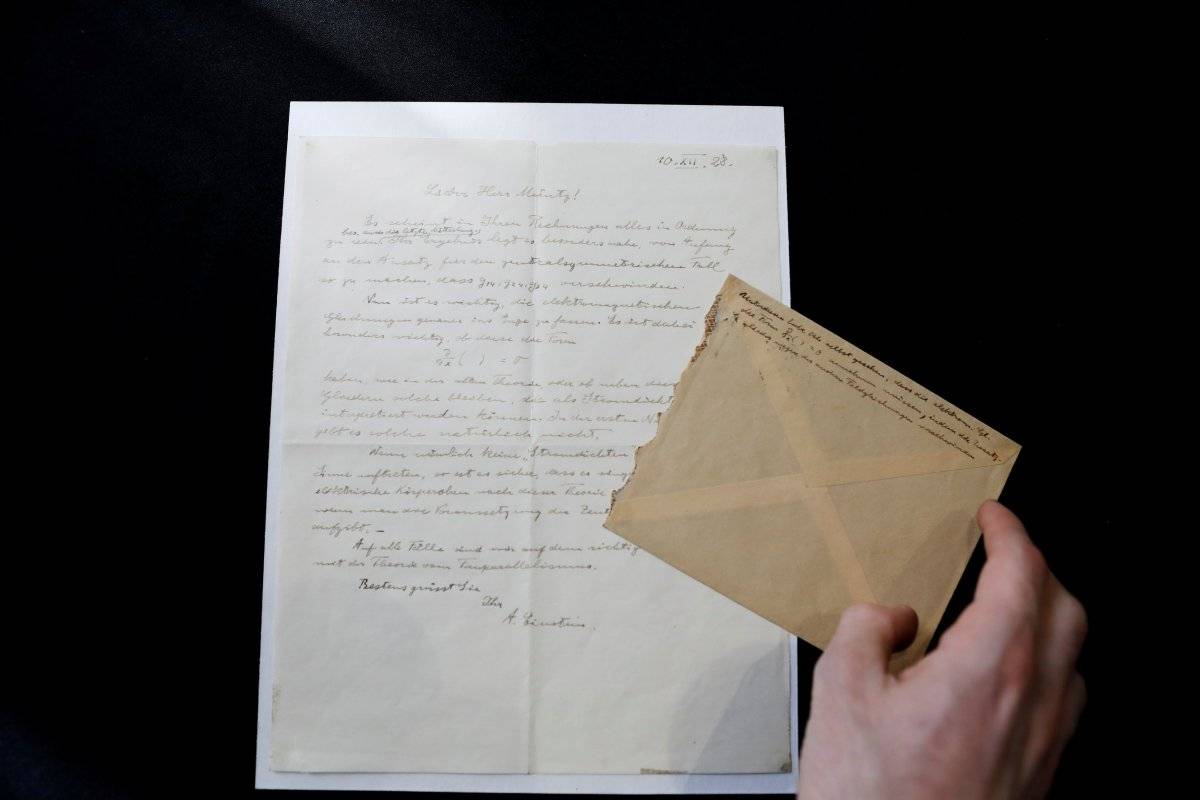 10.XII.28.
Lieber Herr Müntz!
Es scheint in Ihren Rechnungen alles in Ordnung
bes. auch die letzte
zu sein. Ihr Ergebnis legt es besonders nahe, von Anfang
an den Ansatz für den zentralsymmetrischen Fall
so zu machen, dass g14, g24, g34 verschwinden.
Nun ist es wichtig, die elektromagnetischen
Gleichungen genauer ins Auge zu fassen. Es ist dabei
besonders wichtig, ob diese die Form
∂/∂x ( ) = 0
haben, wie in der alten Theorie, oder ob neben diesen
Gliedern solche bleiben, die als Stromdicht
interpretiert werden können. In der ersten N
gibt es solche natürlich nicht.
Wenn nämlich keine „Stromdichten
Sinne auftreten, so ist es sicher, dass es
elektrische Körperchen nach dieser Theorie
wenn man die Voraussetzung der Zent
aufgibt. —
Auf alle Fälle sind wir auf dem richtig
mit der Theorie vom Fernparallelismus.
Bestens grüsst Sie
Ihr
A. Einstein.
habe ich selbst gesehen, dass die elektrom. Gl.
die Form ∂/∂x ( ) = 0 annehmen müssen, indem die Zusatz-
glieder wegen der anderen Feldgleichungen verschwinden